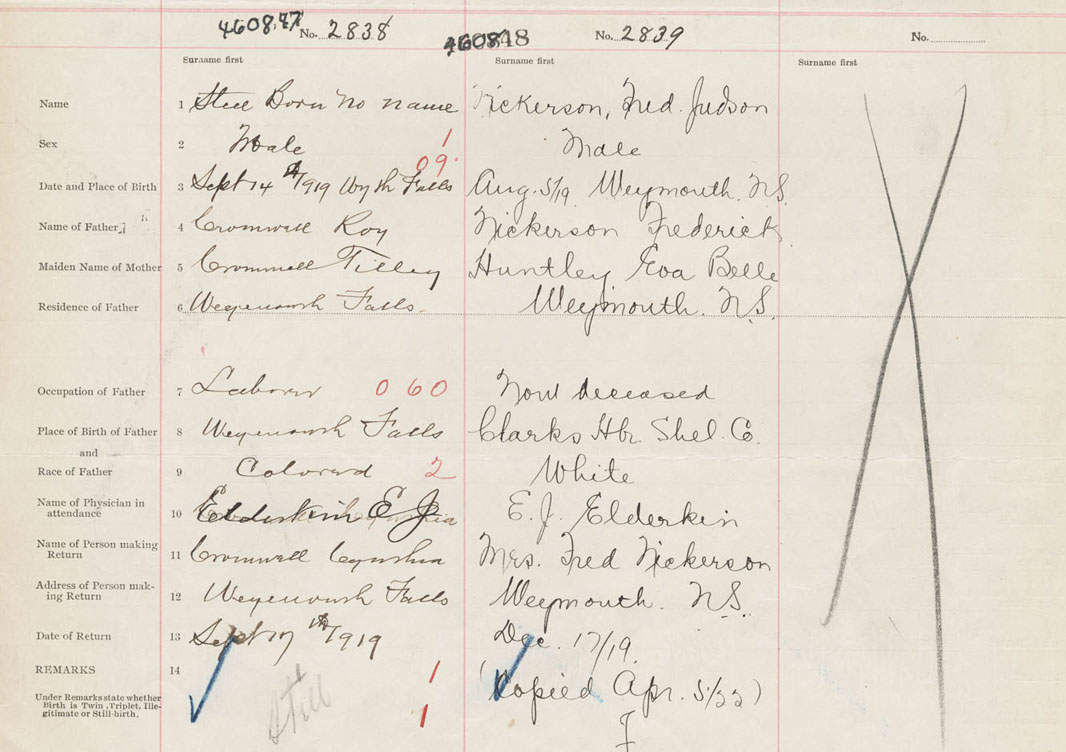 460847 No. 2838 460848 No. 2839 No.
Surname first Surname first Surname first
Name 1 Steel Born No name Nickerson, Fred. Judson
Sex 2 Male 1 Male
09
Date and Place of Birth 3 Sept 14 1919 Wyth Falls Aug. 5/19 Weymouth. N.S.
Name of Father 4 Cromwell Roy Nickerson Frederick
Maiden Name of Mother 5 Cromwell Tilley Huntley Eva Belle
Residence of Father 6 Weymouth Falls. Weymouth. N.S.
Occupation of Father 7 Laborer 0 6 0 Now deceased
Place of Birth of Father 8 Weymouth Falls Clarks Hbr. Shel. Co.
and
Race of Father 9 Colored 2 White
Name of Physician in
attendance 10 Elderkin E J E. J. Elderkin
Name of Person making
Return 11 Cromwell Cynthia Mrs. Fred Nickerson
Address of Person mak-
ing Return 12 Weymouth Falls Weymouth. N.S.
Date of Return 13 Sept 17th 1919 Dec. 17/19.
REMARKS 14 1 (Copied Apr. 5/33)
Under Remarks state whether
Birth is Twin, Triplet, Ille-
gitimate or Still-birth. Still 1 F